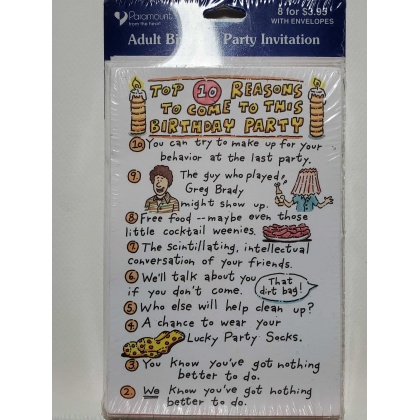 Paramount
from the heart
8 for $3.95
WITH ENVELOPES
Adult Bi Party Invitation
TOP 10 REASONS
TO COME TO THIS
BIRTHDAY PARTY
10 You can try to make up for your
behavior at the last party.
9. The guy who played
Greg Brady
might show up.
8 Free food -- maybe even those
little cocktail weenies.
7. The scintillating, intellectual
conversation of your friends.
6. We'll talk about you
if you don't come.
That
dirt bag!
5 Who else will help clean up?
4 A chance to wear your
Lucky Party Socks.
3. You know you've got nothing
better to do.
2. We know you've got nothing
better to do.